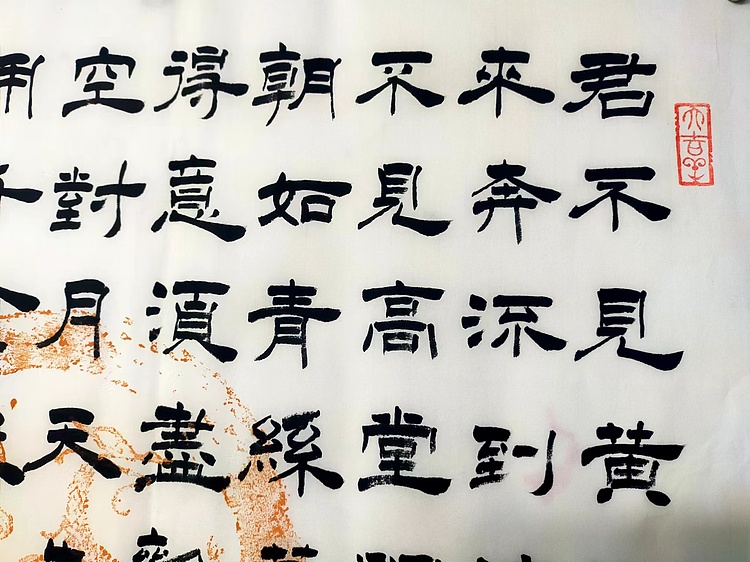 大吉羊
君不見黄
來奔流到
不見高堂
朝如青絲
得意湏盡
空對月天